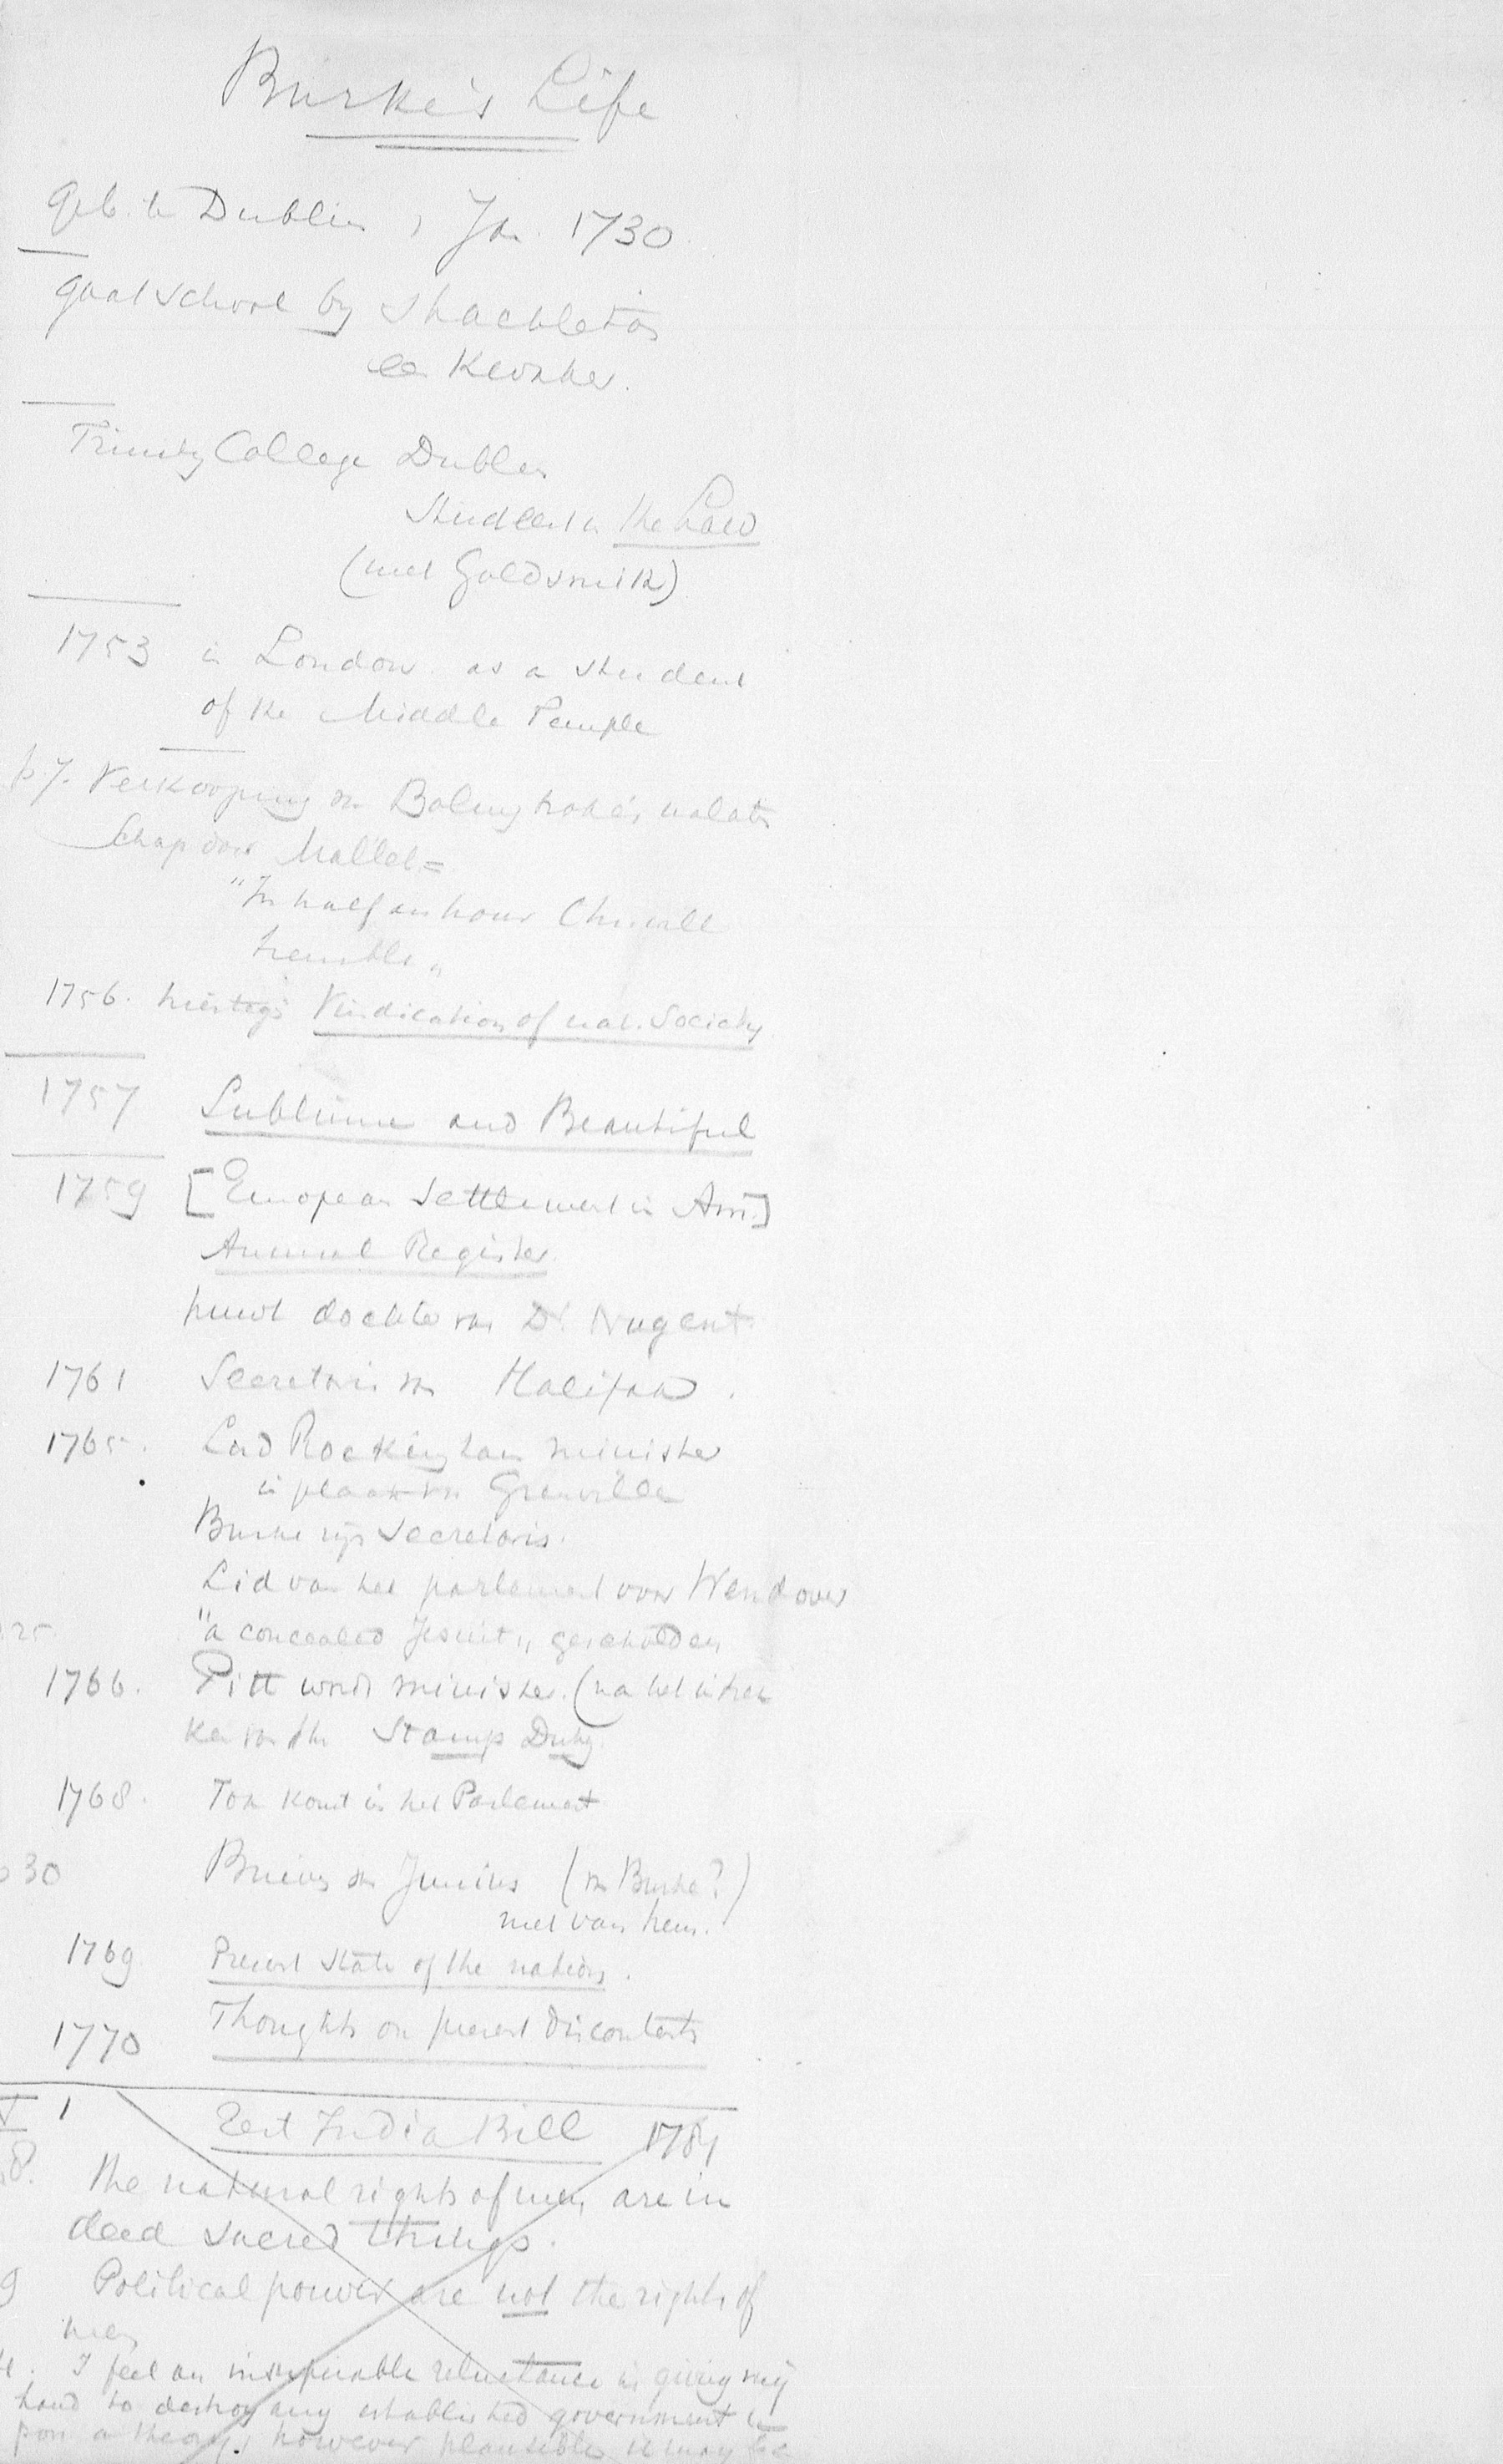 Burke's Life
geb. te Dublin 1 Jan. 1730
gaat school by Shackleton
een Kwaker.
Trinity College Dublin
Student in the Law
(met Goldsmith)
1753 in London as a student
of the Middle Temple
p 7. Verkooping van Bolingbroke's nalaten
schap door Mallet =
"In half an hour
tremble „
1756. Vindication of nat. Society
1757 Sublime and Beautiful
1759 [European Settlement in Am.]
Annual Register
huwt dochter van Dr Nugent.
1761 Secretaris van Halifax.
1765. Lord Rockingham minister
in plaats van Grenville
Burke zijn Secretaris.
Lid van het parlement voor Wendover
25 "a concealed Jesuit „ gescholden
1766. Pitt wordt minister. (na het intrek
ken van de Stamp Duty.
1768. komt in het Parlement
30 Brieven van Junius (van Burke?)
niet van hem.
1769 Present State of the nation.
1770 Thoughts on present Discontents
V 1 East India Bill 1784
8. The natural rights of men are in
deed sacred things.
9 Political power are not the rights of
men
I feel an insuperable reluctance in giving my
hand to destroy any established government u
pon a theory, however plausible it may be